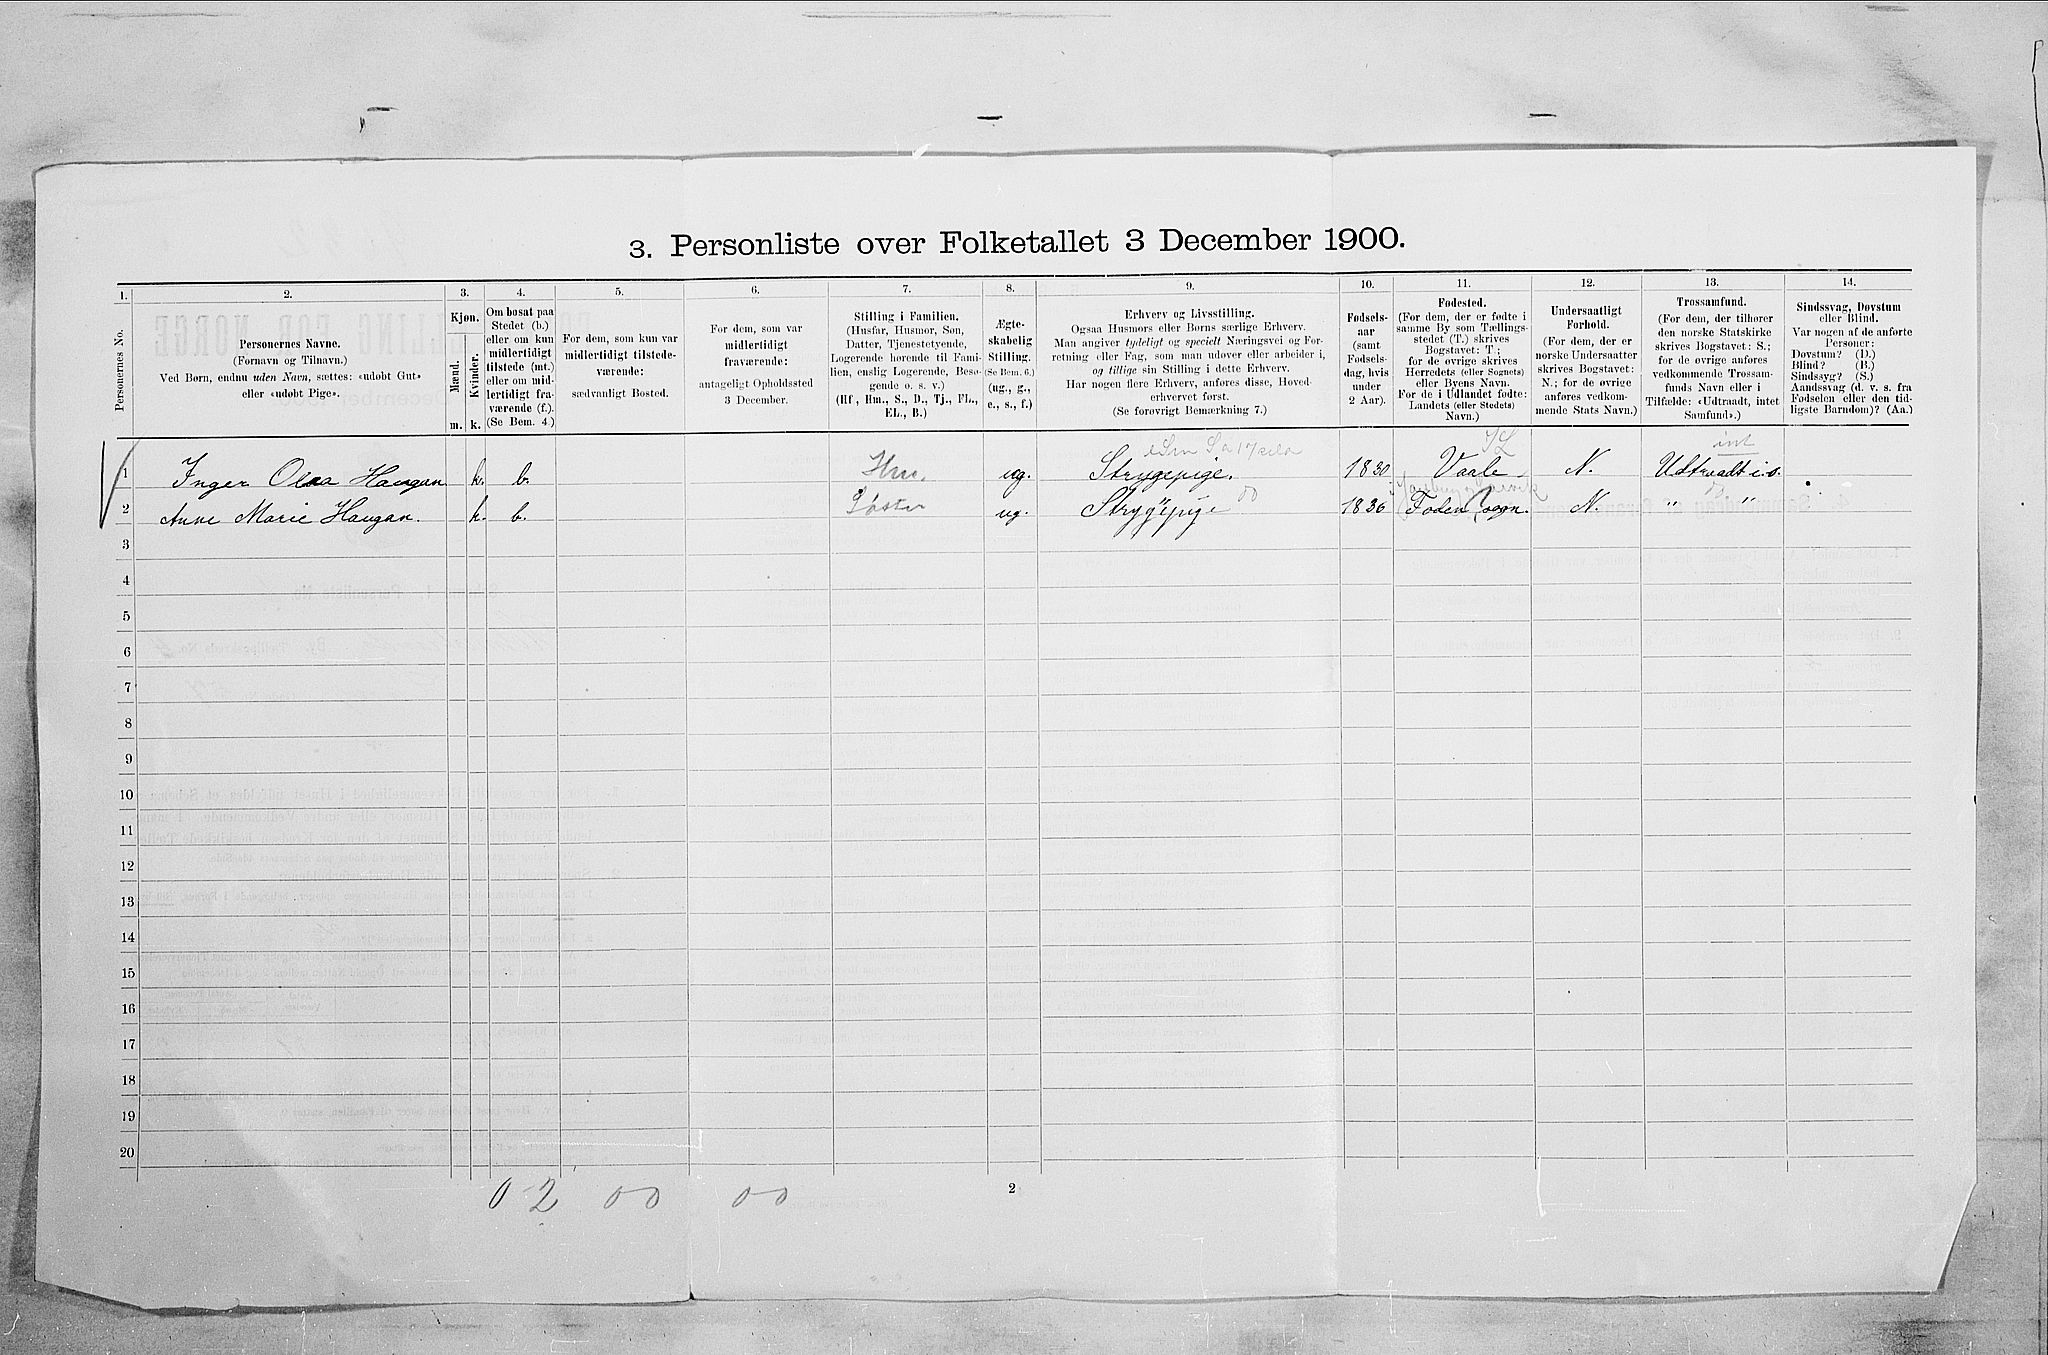 3. Personliste over Folketallet 3 December 1900.
1. 2. 3. 4. 5. 6. 7. 8. 9. 10. 11. 12. 13. 14.
Personernes No.
Personernes Navne.
(Fornavn og Tilnavn.)
Ved Børn, endnu uden Navn, sættes: «udøbt Gut»
eller «udøbt Pige».
Kjøn.
Mænd.
Kvinder.
m. k.
Om bosat paa
Stedet (b.)
eller om kun
midlertidigt
tilstede (mt.)
eller om mid-
lertidigt fra-
værende (f.).
(Se Bem. 4.)
For dem, som kun var
midlertidigt tilstede-
værende:
sædvanligt Bosted.
For dem, som var
midlertidigt
fraværende:
antageligt Opholdssted
3 December.
Stilling i Familien.
(Husfar, Husmor, Søn,
Datter, Tjenestetyende,
Logerende hørende til Fami-
lien, enslig Logerende, Besø-
gende o. s. v.)
(Hf., Hm., S., D., Tj., FL.,
EL., B.)
Ægte-
skabelig
Stilling.
(Se Bem. 6.)
(ug., g.,
e., s., f.)
Erhverv og Livsstilling.
Ogsaa Husmors eller Børns særlige Erhverv.
Man angiver tydeligt og specielt Næringsvei og For-
retning eller Fag, som man udover eller arbeider i,
og tillige sin Stilling i dette Erhverv.
Har nogen flere Erhverv, anføres disse, Hoved-
erhvervet først.
(Se forøvrigt Bemærkning 7.)
Fødsels-
aar
(samt
Fødsels-
dag, hvis
under
2 Aar).
Fødested.
(For dem, der er fødte i
samme By som Tællings-
stedet (T.) skrives
Bogstavet: T.;
for de øvrige skrives
Herredets (eller Sognets)
eller Byens Navn.
For de i Udlandet fødte:
Landets (eller Stedets)
Navn.)
Undersaatligt
Forhold.
(For dem, der er
norske Undersaatter
skrives Bogstavet:
N.; for de øvrige
anføres vedkom-
mende Stats Navn.)
Trossamfund.
(For dem, der tilhører
den norske Statskirke
skrives Bogstavet: S.;
for de øvrige anføres
vedkommende Trossam-
funds Navn eller i
Tilfælde: «Udtraadt, intet
Samfund».)
Sindssvag, Døvstum
eller Blind.
Var nogen af de anførte
Personer:
Døvstum? (D.)
Blind? (B.)
Sindssyg? (S.)
Aandssvag (d. v. s. fra
Fødselen eller den tid-
ligste Barndom)? (Aa.)
1 Inger Olea Haugan k. b. Hm. ug. Strygepige. 1830 Vaale N. Udtraadt i.s.
2 Anne Marie Haugan. k. b. Søster ug. Strygepige 1836 Foden sogn. N. " "
3
4
5
6
7
8
9
10
11
12
13
14
15
16
17
18
19
20
0 2 00 00 2